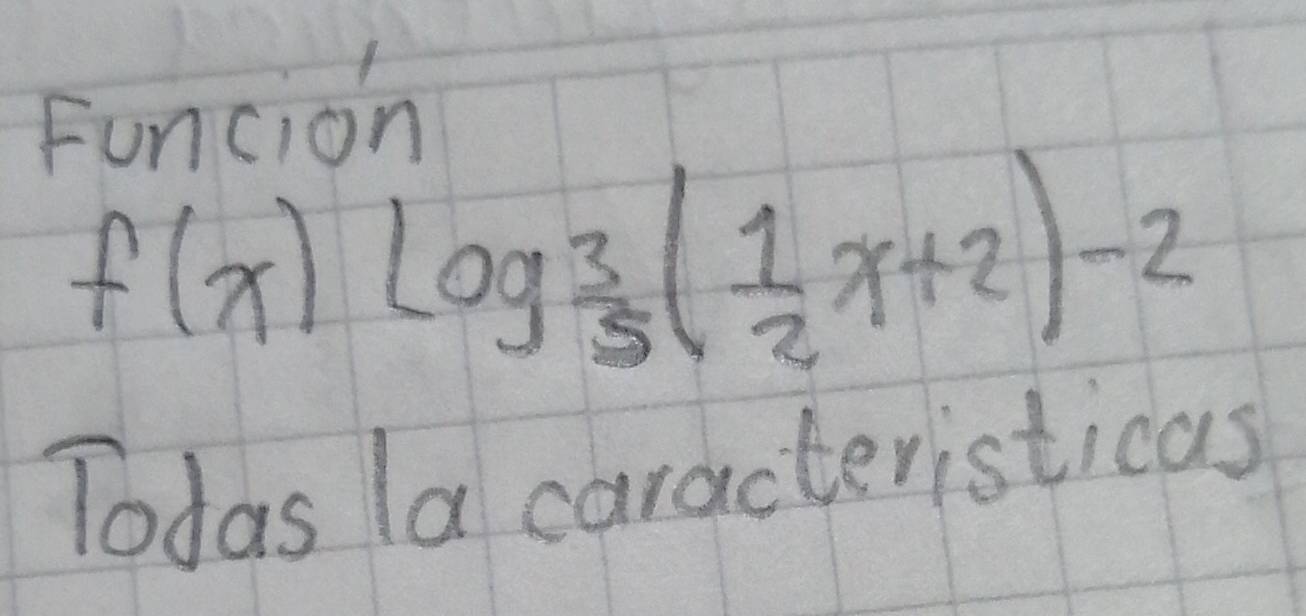 Función
f(x) Log 3/5 (1/2 x+2)-2
Todas la caracteristicas